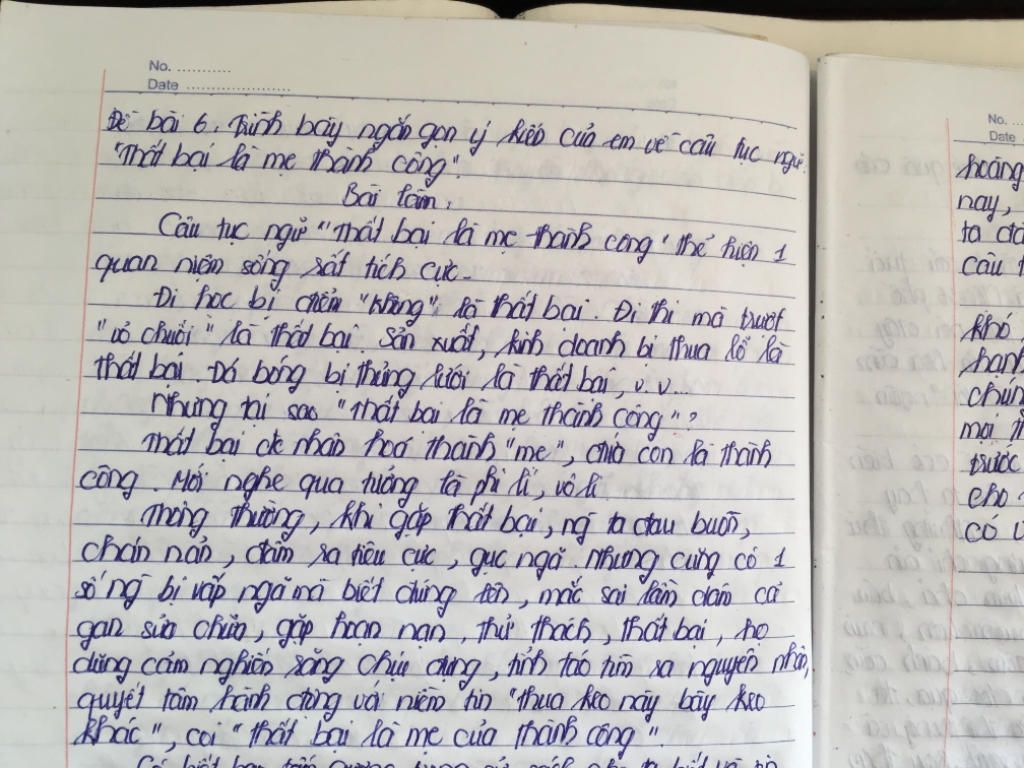 No. ...........
Date ........................
Đề bài 6. Trình bày ngắn gọn ý kiến của em về câu tục ngữ.
"Thất bại là mẹ thành công".
Bài làm.
Câu tục ngữ "Thất bại là mẹ thành công" thể hiện 1
quan niệm sống rất tích cực.
Đi học bị điểm "không" là thất bại. Đi thi mà trượt
"vỏ chuối" là thất bại. Sản xuất, kinh doanh bị thua lỗ là
thất bại. Đá bóng bị thủng lưới là thất bại, v.v...
Nhưng tại sao "Thất bại là mẹ thành công"?
Thất bại đc nhân hoá thành "mẹ", đứa con là thành
công. Mới nghe qua tưởng là phi lí, vô lí
Thông thường, khi gặp thất bại, ng ta đau buồn,
chán nản, đâm ra tiêu cực, gục ngã. Nhưng cũng có 1
số ng bị vấp ngã mà biết đứng lên, mắc sai lầm dám cả
gan sửa chữa, gặp hoạn nạn, thử thách, thất bại, họ
dũng cảm nghiến răng chịu đựng, tỉnh táo tìm ra nguyên nhân,
quyết tâm hành động với niềm tin "thua keo này bày keo
khác", coi "thất bại là mẹ của thành công".
Có biết bao tấm gương trong sử sách
No. ...
Date
hoàng
nay,
ta đã
câu t
khó
hạnh
chún
mại
trước
cho
có